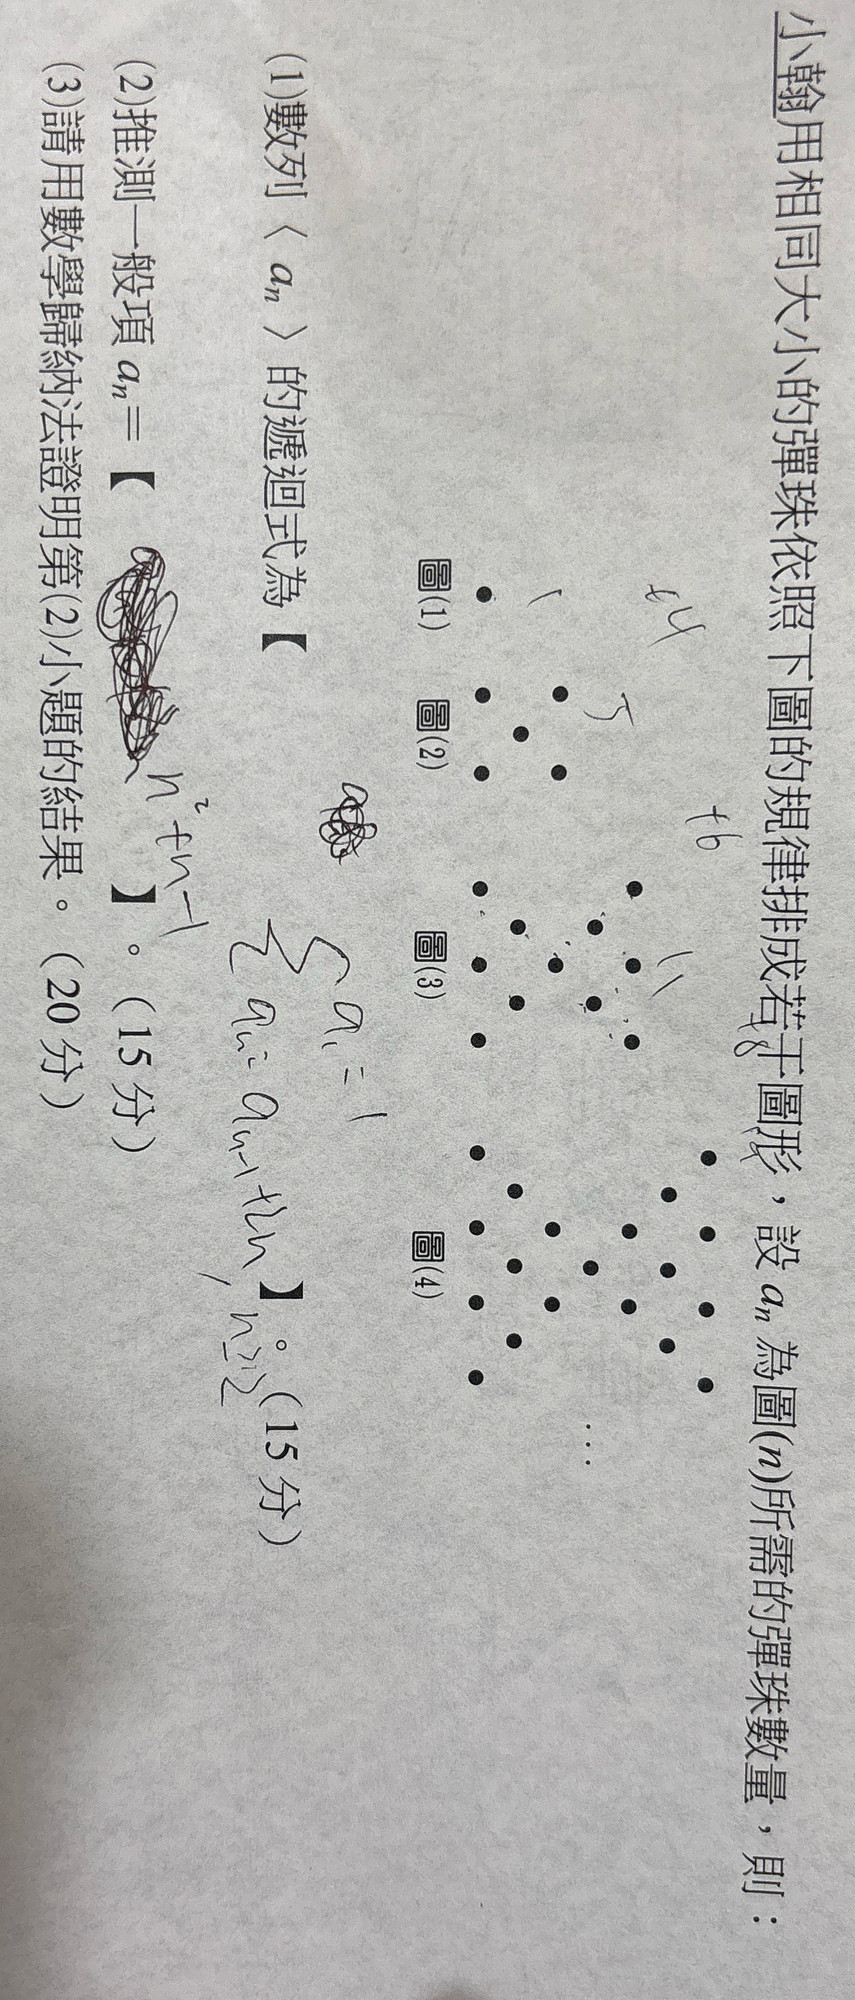 小翰用相同大小的彈珠依照下圖的規律排成若干圖形，設 aₙ 為圖(n)所需的彈珠數量，則：
+4 +6 +8
1 5 11
圖(1) 圖(2) 圖(3) 圖(4) …
a₁=1
(1)數列〈 aₙ 〉的遞迴式為【 aₙ=aₙ₋₁+2n , n≥2 】。（15 分）
(2)推測一般項 aₙ＝【 n²+n-1 】。（15 分）
(3)請用數學歸納法證明第(2)小題的結果。（20 分）